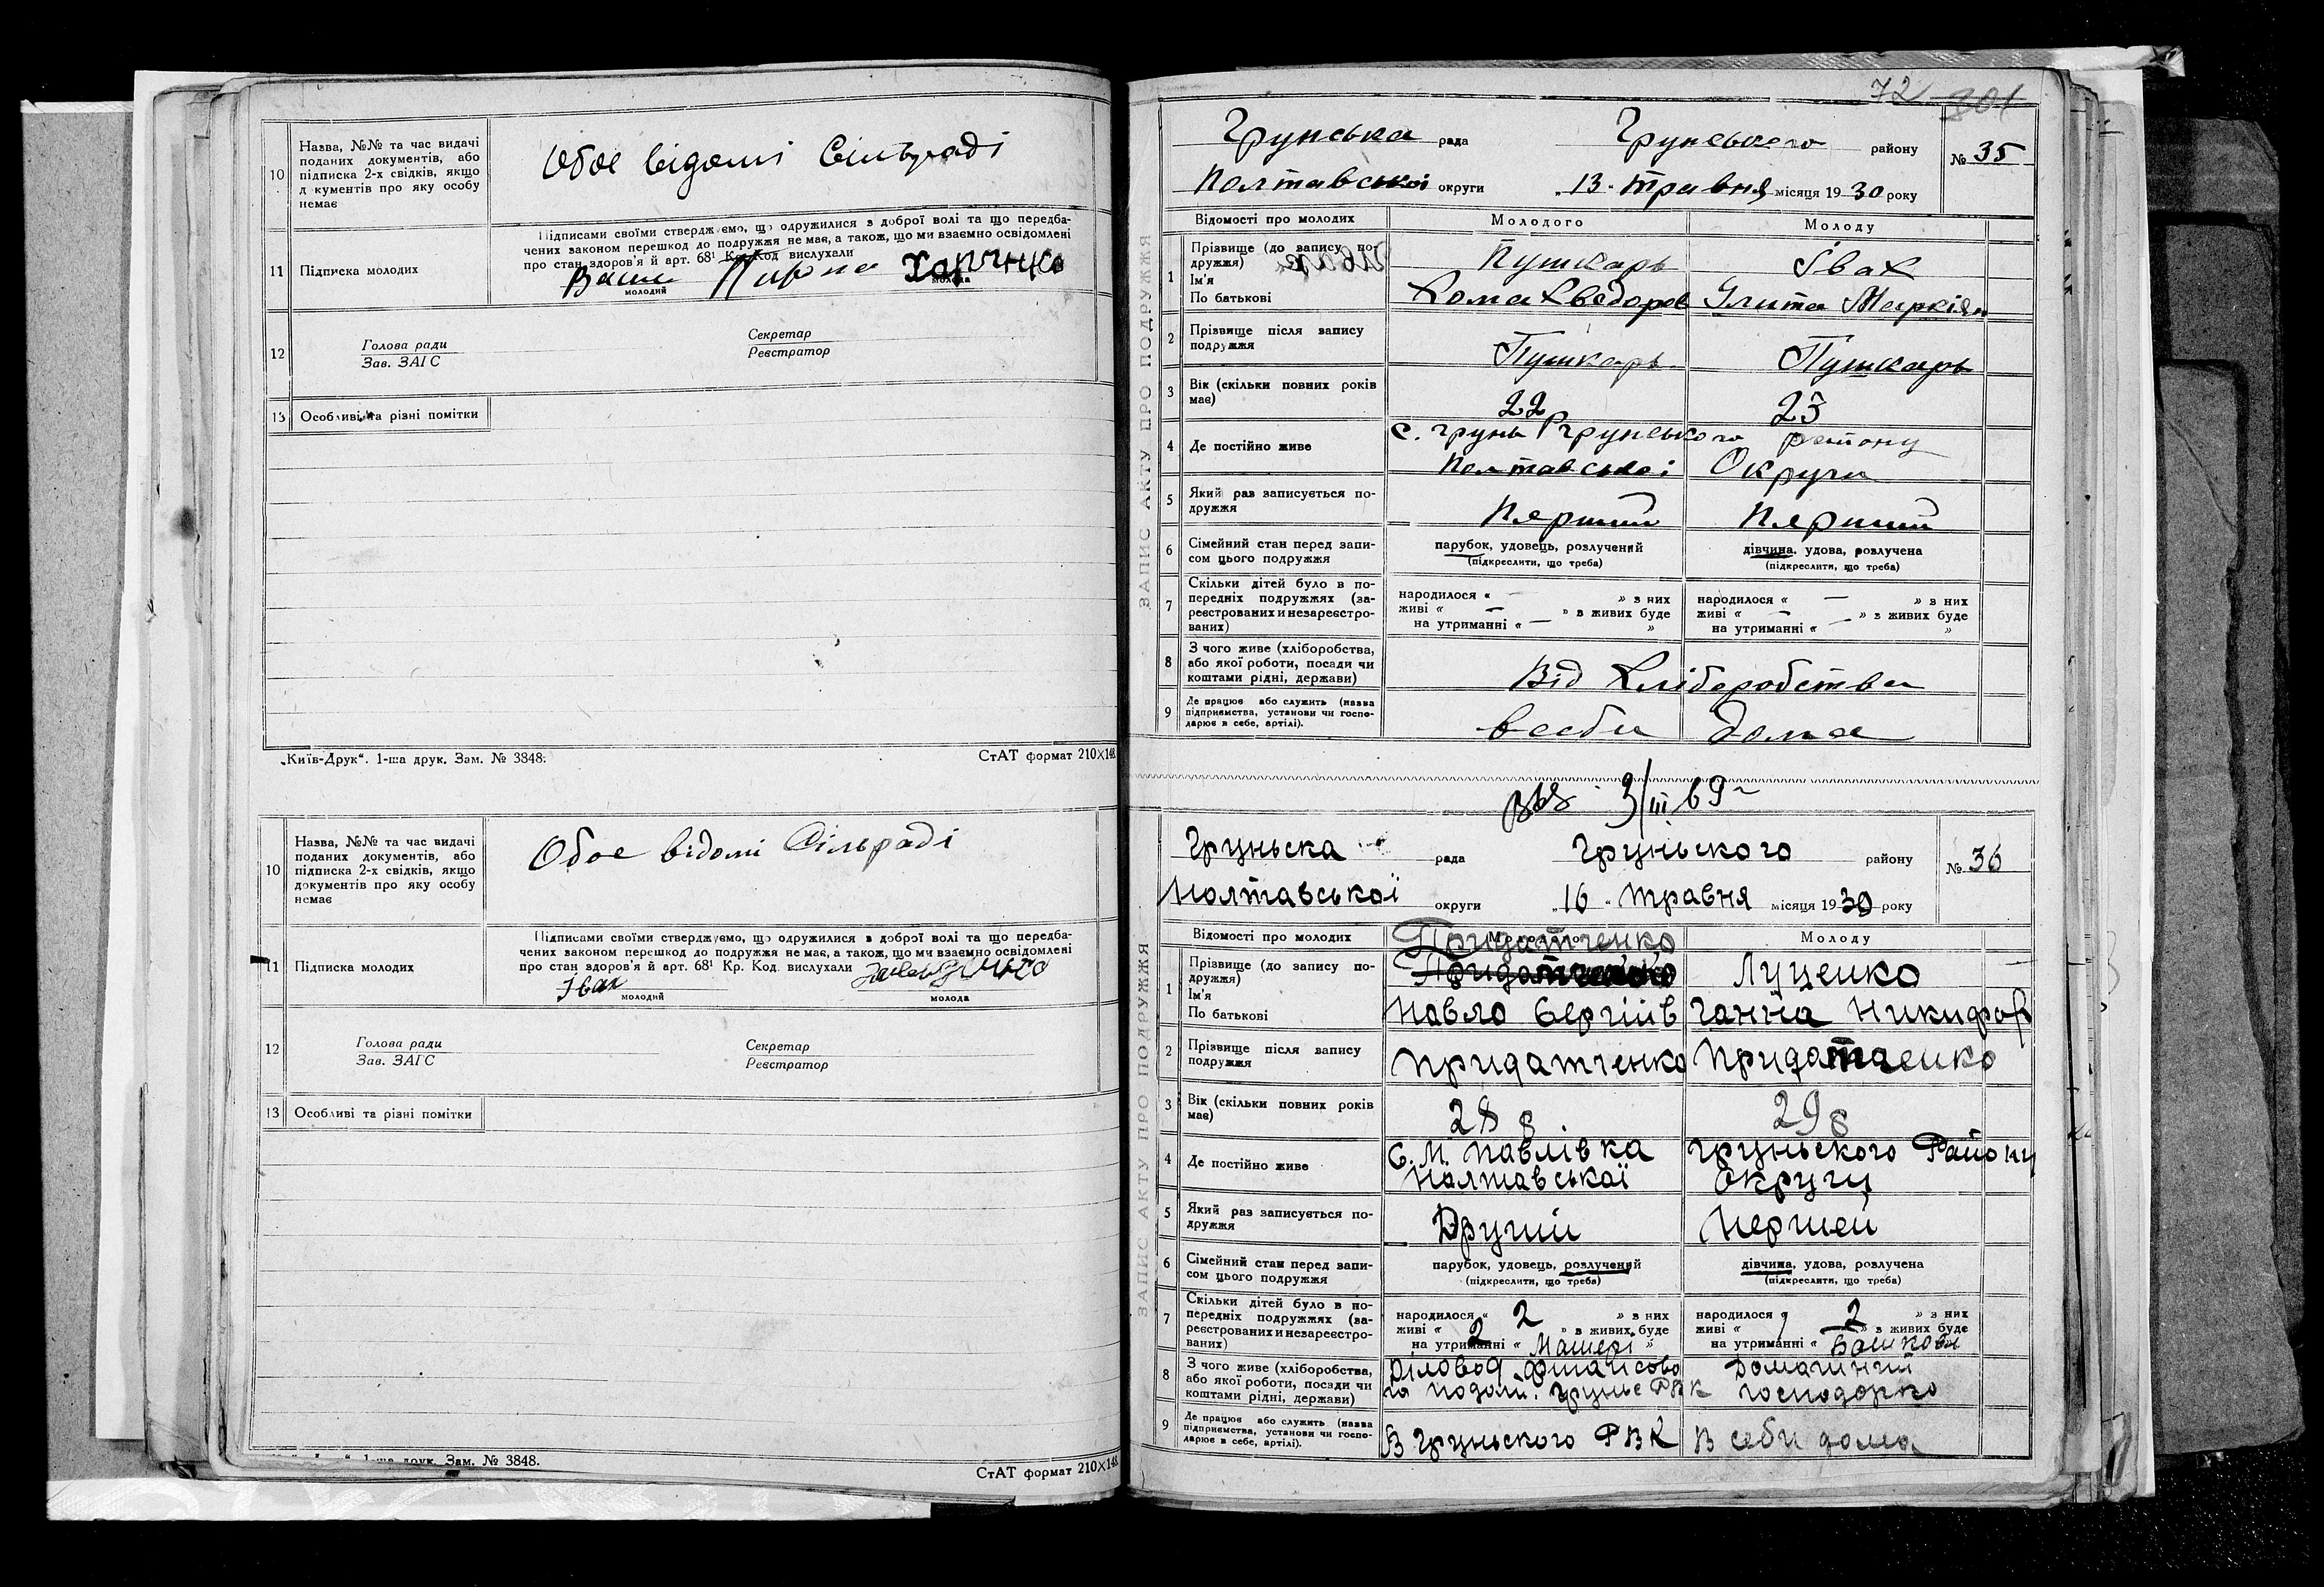 10
Назва, №№ та час видачі
поданих документів, або
підписка 2-х свідків, якщо
д кументів про яку особу
немає
Обоє відомі Сільраді
11
Підписка молодих
Підписами своїми стверджуємо, що одружилися з доброї волі та що передба-
чених законом перешкод до подружжя не має, а також, що ми взаємно освідомлені
про стан здоров'я й арт. 68¹ Кр. Код вислухали
молодий
молода
12
Голова ради
Зав. ЗАГС
Секретар
Реєстратор
13
Особливі та різні помітки
„Київ-Друк“. 1-ша друк. Зам. № 3848.
СтАТ формат 210×148
10
Назва, №№ та час видачі
поданих документів, або
підписка 2-х свідків, якщо
документів про яку особу
немає
Обоє відомі Сільраді
11
Підписка молодих
Підписами своїми стверджуємо, що одружилися з доброї волі та що передба-
чених законом перешкод до подружжя не має, а також, що ми взаємно освідомлені
про стан здоров'я й арт. 68¹ Кр. Код. вислухали
Івах
молодий
молода
12
Голова ради
Зав. ЗАГС
Секретар
Реєстратор
13
Особливі та різні помітки
1-ша друк. Зам. № 3848.
СтАТ формат 210×148
72 301
ЗАПИС АКТУ ПРО ПОДРУЖЖЯ
Грунська рада Грунського району № 35
Полтавської округи „13“ травня місяця 1930 року
Відомості про молодих Молодого Молоду
1
Прізвище (до запису по-
дружжя)
Ім'я
По батькові
Пушкарь Івах
Хома Хведоров Улита Маркіян
2
Прізвище після запису
подружжя
Пушкарь Пушкарь
3
Вік (скільки повних років
має)
22 23
4
Де постійно живе
с. Грунь Грунського району
Полтавської Округи
5
Який раз записується по-
дружжя
Перший Перший
6
Сімейний стан перед запи-
сом цього подружжя
парубок, удовець, розлучений
(підкреслити, що треба)
дівчина, удова, розлучена
(підкреслити, що треба)
7
Скільки дітей було в по-
передніх подружжях (за-
реєстрованих и незареєстро-
ваних)
народилося « — » з них
живі « — » з живих буде
на утриманні « — »
народилося « — » з них
живі « — » з живих буде
на утриманні « — »
8
З чого живе (хліборобства,
або якої роботи, посади чи
коштами рідні, держави)
Від Хліборобства
9
Де працює або служить (назва
підприємства, установи чи госпо-
дарює в себе, артілі).
в себи дома
3/III 69
ЗАПИС АКТУ ПРО ПОДРУЖЖЯ
Груньска рада Груньского району № 36
Полтавської округи „16“ травня місяця 1930 року
Відомості про молодих Молодого Молоду
1
Прізвище (до запису по-
дружжя)
Ім'я
По батькові
Придатченко
Придатченко Луценко
Павло Сергіив Ганна Никифор
2
Прізвище після запису
подружжя
Придатченко Придатченко
3
Вік (скільки повних років
має)
28 р 29 р
4
Де постійно живе
С. М. Павлівка Груньского Району
Полтавської Округи
5
Який раз записується по-
дружжя
Другий Першей
6
Сімейний стан перед запи-
сом цього подружжя
парубок, удовець, розлучений
(підкреслити, що треба)
дівчина, удова, розлучена
(підкреслити, що треба)
7
Скільки дітей було в по-
передніх подружжях (за-
реєстрованих и незареєстро-
ваних)
народилося « 2 » з них
живі « 2 » з живих буде
на утриманні « Матері »
народилося « 2 » з них
живі « » з живих буде
на утриманні «
8
З чого живе (хліборобства,
або якої роботи, посади чи
коштами рідні, держави)
Діловод Фінансово Домашний
РВК господарко
9
Де працює або служить (назва
підприємства, установи чи госпо-
дарює в себе, артілі).
В Груньского РВК В себи дома